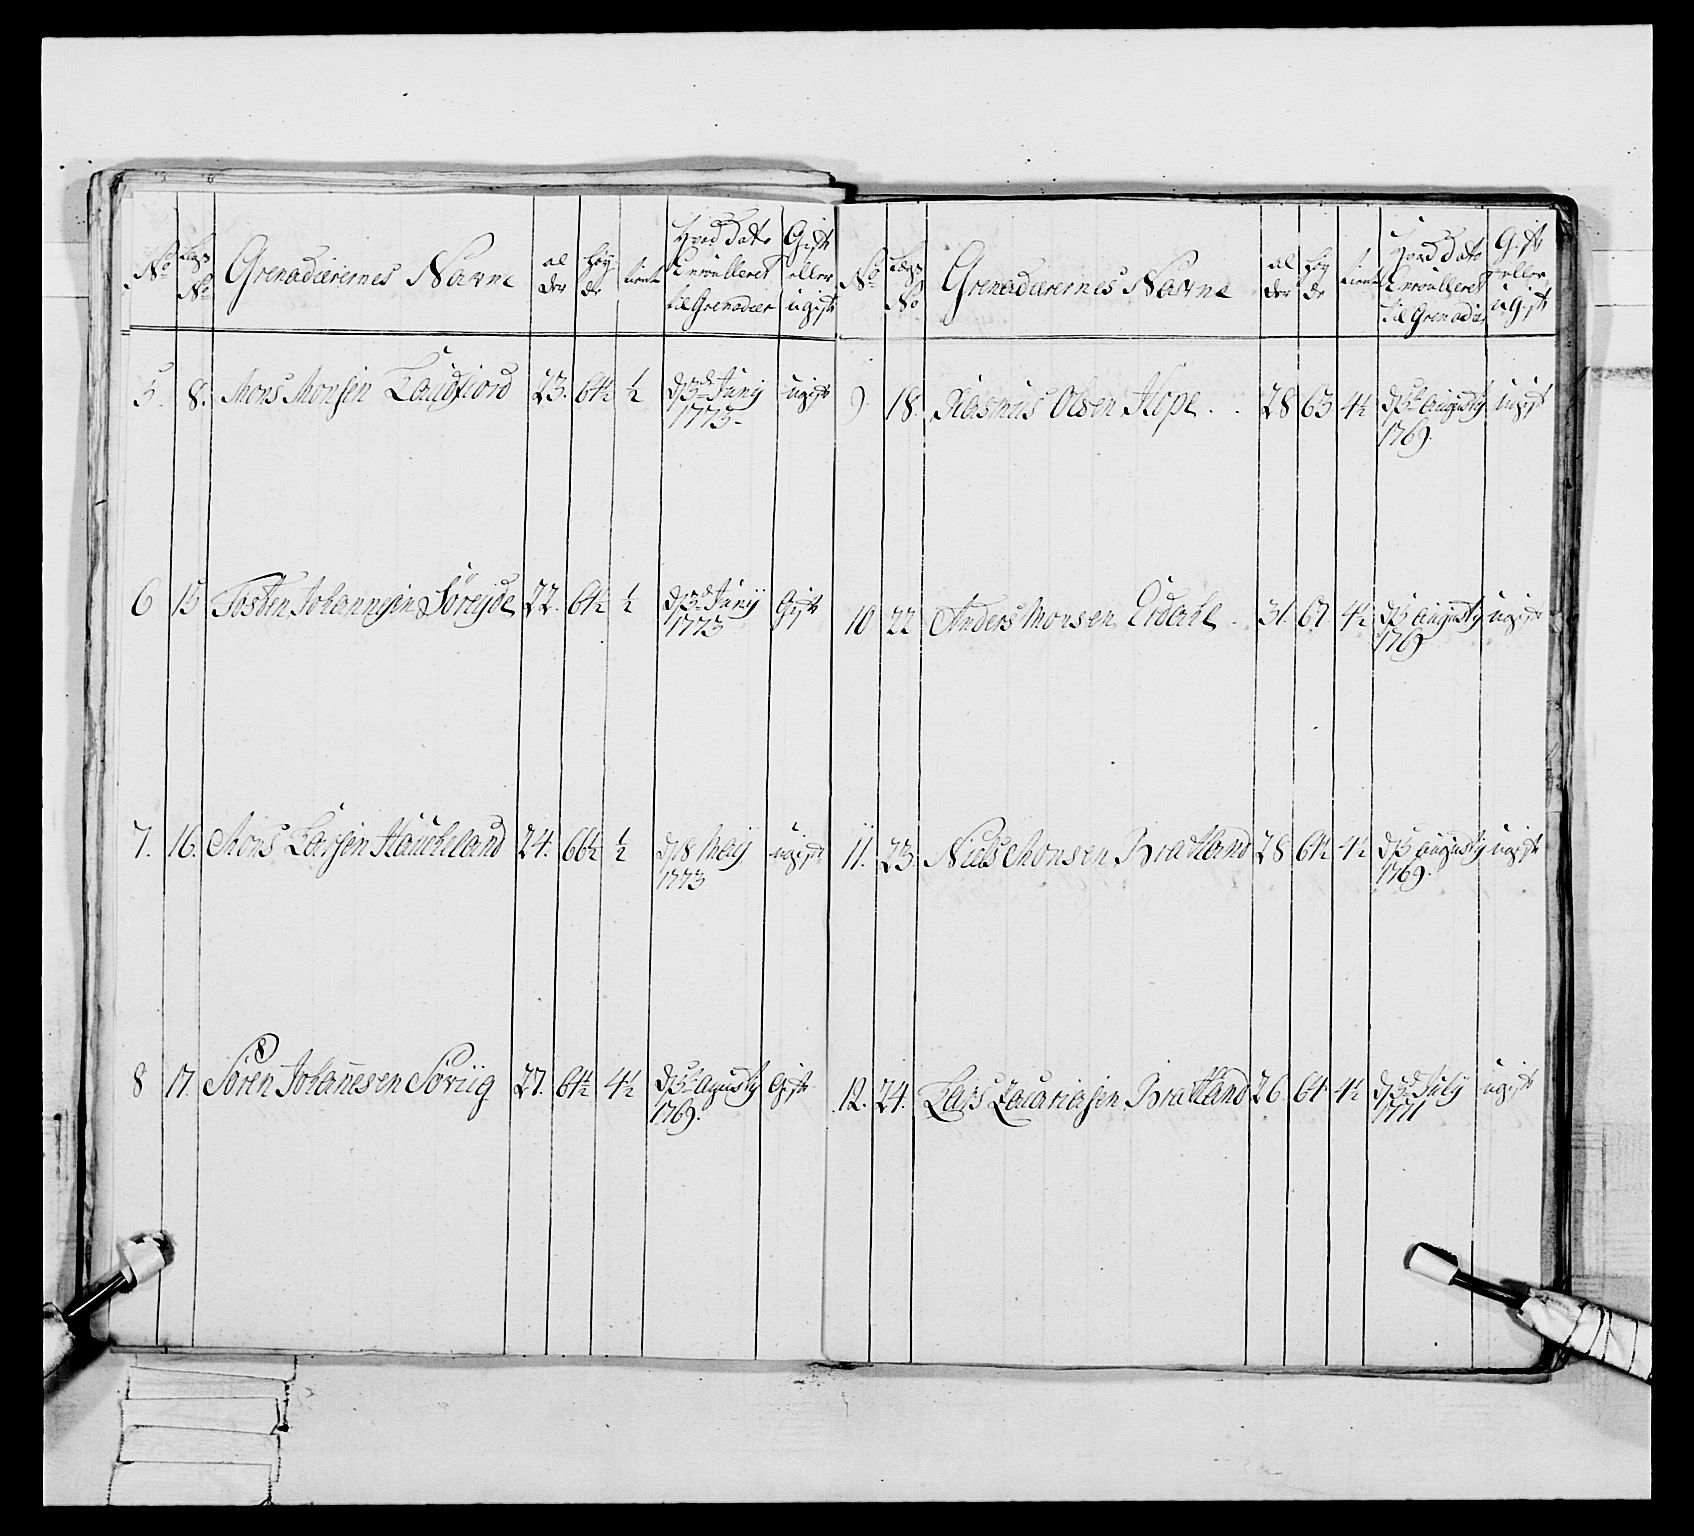 No Lægs No Grenadærernes Navne al der Høy de tient Hvad Dato Enroulleret til Grenadær Gift eller ugift
5. 8. Mons Monsen Taudfiord 23. 64½ ½ d 3de Junij 1773. ugift
6 15 Tosten Johannesen Søreyde 22. 64½ ½ d 3de Junij 1773 Gift
7. 16. Mons Larsen Hauckeland 24. 66½ ½ d 18 Maij 1773 ugift
8 17. Søren Johannesen Søviig 27. 64½ 4½ d 5t Agusty 1769. Gift
No Lægs No Grenadærernes Navne al der Høy de tient Hvad Dato Enroulleret til Grenadær Gift eller ugift
9. 18. Rasmus Olsen Hope 28 63 4½ d 5t Augusty 1769. ugift
10 22 Anders Monsen Erdahl 31. 67 4½ d 5 Augusty 1769 ugift
11. 23. Niels Monsen Bratland 28 64½ 4½ d 5 Augusty 1769. ugift
12. 24. Lars Zacariasen Bratland 26 64 4½ d 3de July 1771 ugift